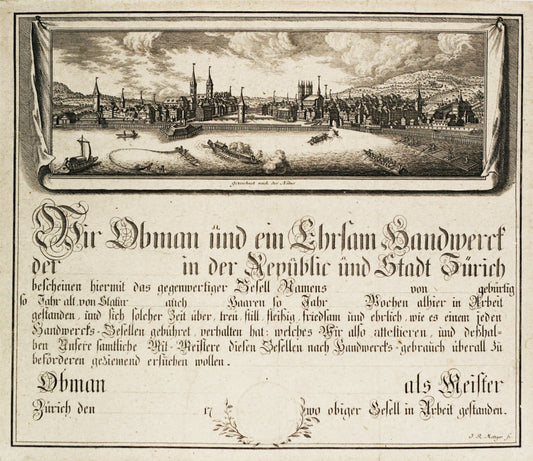 Gezeichnet nach der Natur
Wir Obman und ein Ehrsam Handwerck
der in der Republic und Stadt Zürich
bescheinen hiermit das gegenwertiger Gesell Namens von gebürtig
so Jahr alt, von Statur auch Haaren so Jahr Wochen alhier in Arbeit
gestanden, und sich solcher Zeit über, treü, still, fleißig, friedsam und ehrlich, wie es einem jeden
Handwercks-Gesellen gebühret, verhalten hat; welches Wir also attestieren, und deßhal-
ben Unsere samtliche Mit-Meistere diesen Gesellen nach Handwercks-gebrauch überall zu
beförderen geziemend ersuchen wollen.
Obman als Meister
Zürich den 17 wo obiger Gesell in Arbeit gestanden.